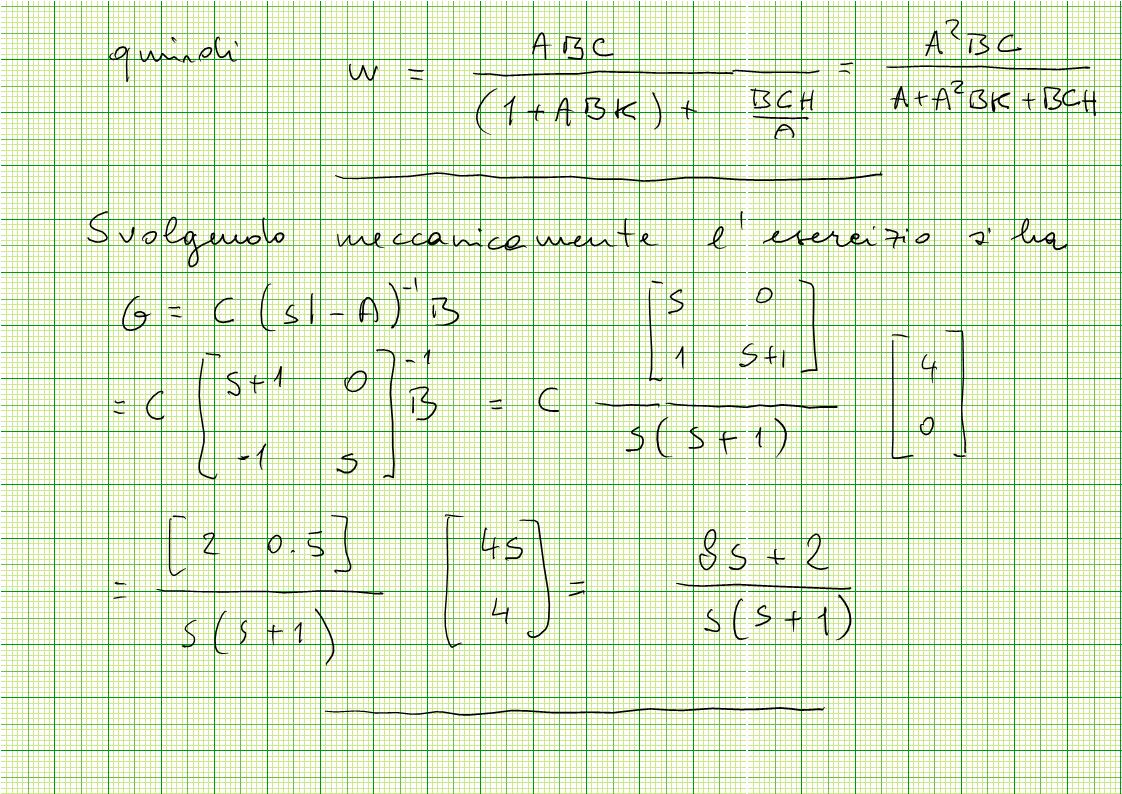 quindi W = ABC / ((1+ABK) + BCH/A) = A²BC / (A+A²BK+BCH)
Svolgendo meccanicamente l'esercizio si ha
G = C (sI - A)⁻¹ B
= C [s+1 0; -1 s]⁻¹ B = C [s 0; 1 s+1] / s(s+1) [4; 0]
= [2 0.5] / s(s+1) [4s; 4] = 8s+2 / s(s+1)